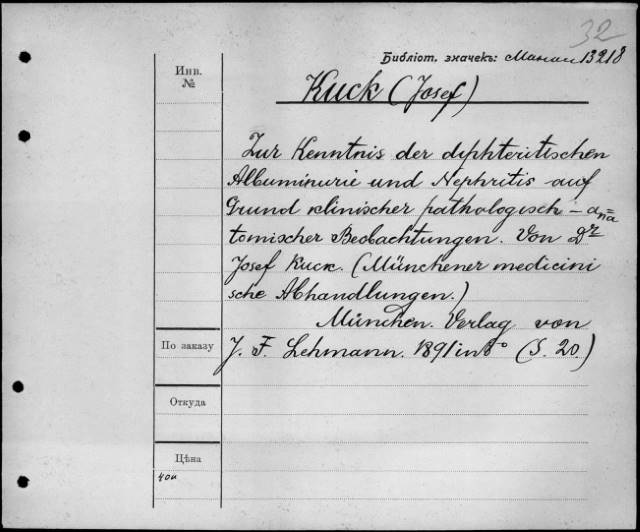 32
Библіот. значекъ: Манаси 13218
Инв.
№
Kuck (Josef)
Zur Kenntnis der diphteritischen
Albuminurie und Nephritis auf
Grund klinischer pathologisch-ana=
tomischer Beobachtungen. Von Dr
Josef Kuck. (Münchener medicini
sche Abhandlungen.)
München. Verlag von
По заказу
J. F. Lehmann. 1891 in 8° (S. 20.)
Откуда
Цѣна